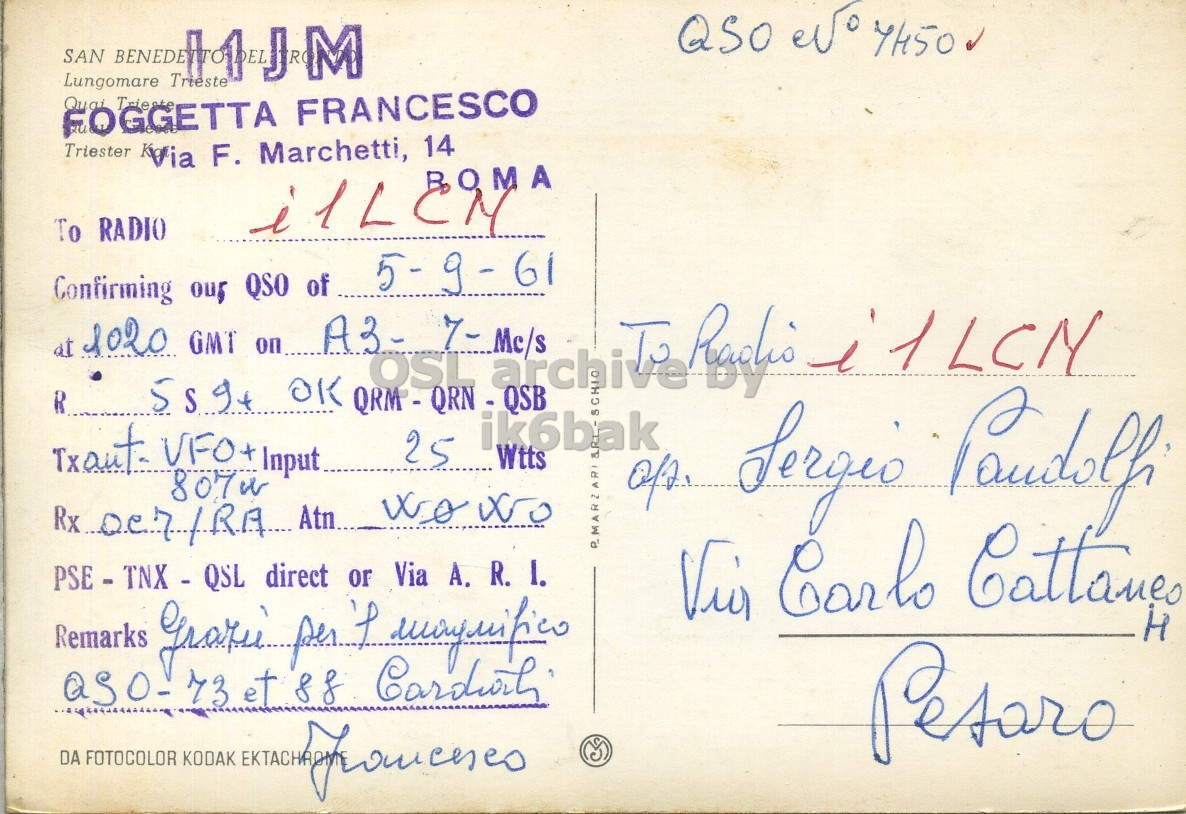 QSO No 7450 ✓
SAN BENEDETTO DEL TRONTO
Lungomare Trieste
Quai Trieste
Quay Trieste
Triester Kai
I1JM
FOGGETTA FRANCESCO
Via F. Marchetti, 14
ROMA
To RADIO i1LCM
Confirming our QSO of 5-9-61
at 1020 GMT on A3- 7- Mc/s
R 5 S 9+ OK QRM - QRN - QSB
Tx VFO+ Input 25 Wtts
807
Rx OC7/RA Atn
PSE - TNX - QSL direct or Via A. R. I.
Remarks Grazie per il magnifico
QSO - 73 et 88 Cordiali
Francesco
DA FOTOCOLOR KODAK EKTACHROME
P. MARZARI S.R.L. - SCHIO
To Radio i1LCM
op. Sergio Pandolfi
Via Carlo Cattaneo
Pesaro
QSL archive by
ik6bak